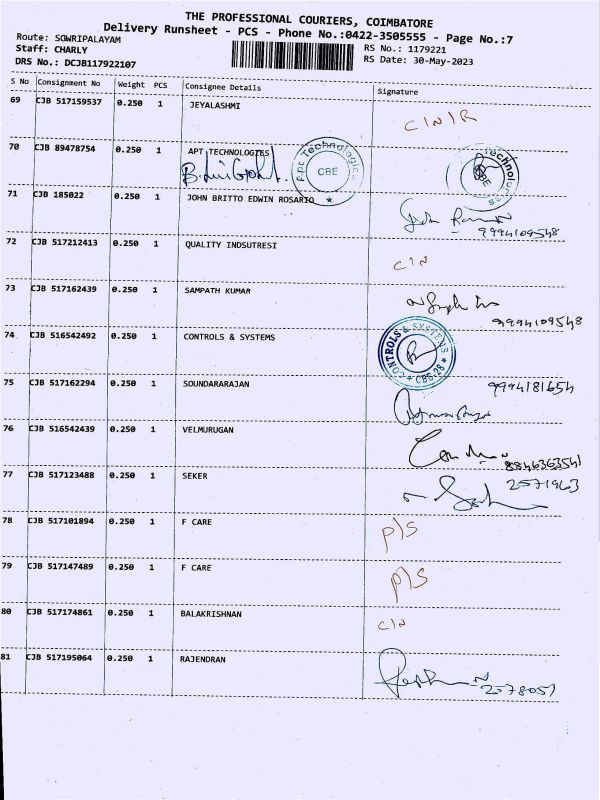 THE PROFESSIONAL COURIERS, COIMBATORE
Delivery Runsheet - PCS - Phone No.:0422-3505555 - Page No.:7
Route: SOWRIPALAYAM
Staff: CHARLY
DRS No.: DCJB117922107
RS No.: 1179221
RS Date: 30-May-2023
S No Consignment No Weight PCS Consignee Details Signature
69 CJB 517159537 0.250 1 JEYALASHMI C/N/R
70 CJB 89478754 0.250 1 APT TECHNOLOGIES
Apt Technologies CBE
Technologies CBE
71 CJB 185022 0.250 1 JOHN BRITTO EDWIN ROSARIO
9994109548
72 CJB 517212413 0.250 1 QUALITY INDSUTRESI C/N
73 CJB 517162439 0.250 1 SAMPATH KUMAR
9994109548
74 CJB 516542492 0.250 1 CONTROLS & SYSTEMS
CONTROLS & SYSTEMS CBE-28
75 CJB 517162294 0.250 1 SOUNDARARAJAN 9994181654
76 CJB 516542439 0.250 1 VELMURUGAN
8846363541
77 CJB 517123488 0.250 1 SEKER 2571963
78 CJB 517101894 0.250 1 F CARE P/S
79 CJB 517147489 0.250 1 F CARE P/S
80 CJB 517174861 0.250 1 BALAKRISHNAN C/N
81 CJB 517195064 0.250 1 RAJENDRAN
2578057